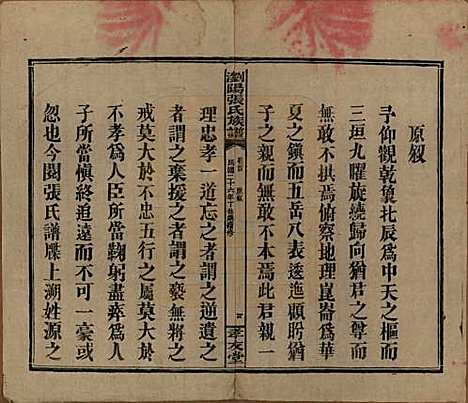 原叙
予仰觀乾象北辰為中天之樞而
三垣九曜旋繞歸向猶君之尊而
無敢不拱焉俯察地理崑崙爲華
夏之鎮而五岳八表逶迤顧盼猶
子之親而無敢不本焉此君親一
瀏陽張氏族譜
卷首
原叙
民國三十六年丁亥續修
孝友堂
理忠孝一道忘之者謂之逆遺之
者謂之棄援之者謂之褻無將之
戒莫大於不忠五行之屬莫大於
不孝爲人臣所當鞠躬盡瘁爲人
子所當慎終追遠而不可一豪或
忽也今閱張氏譜牒上溯姓源之